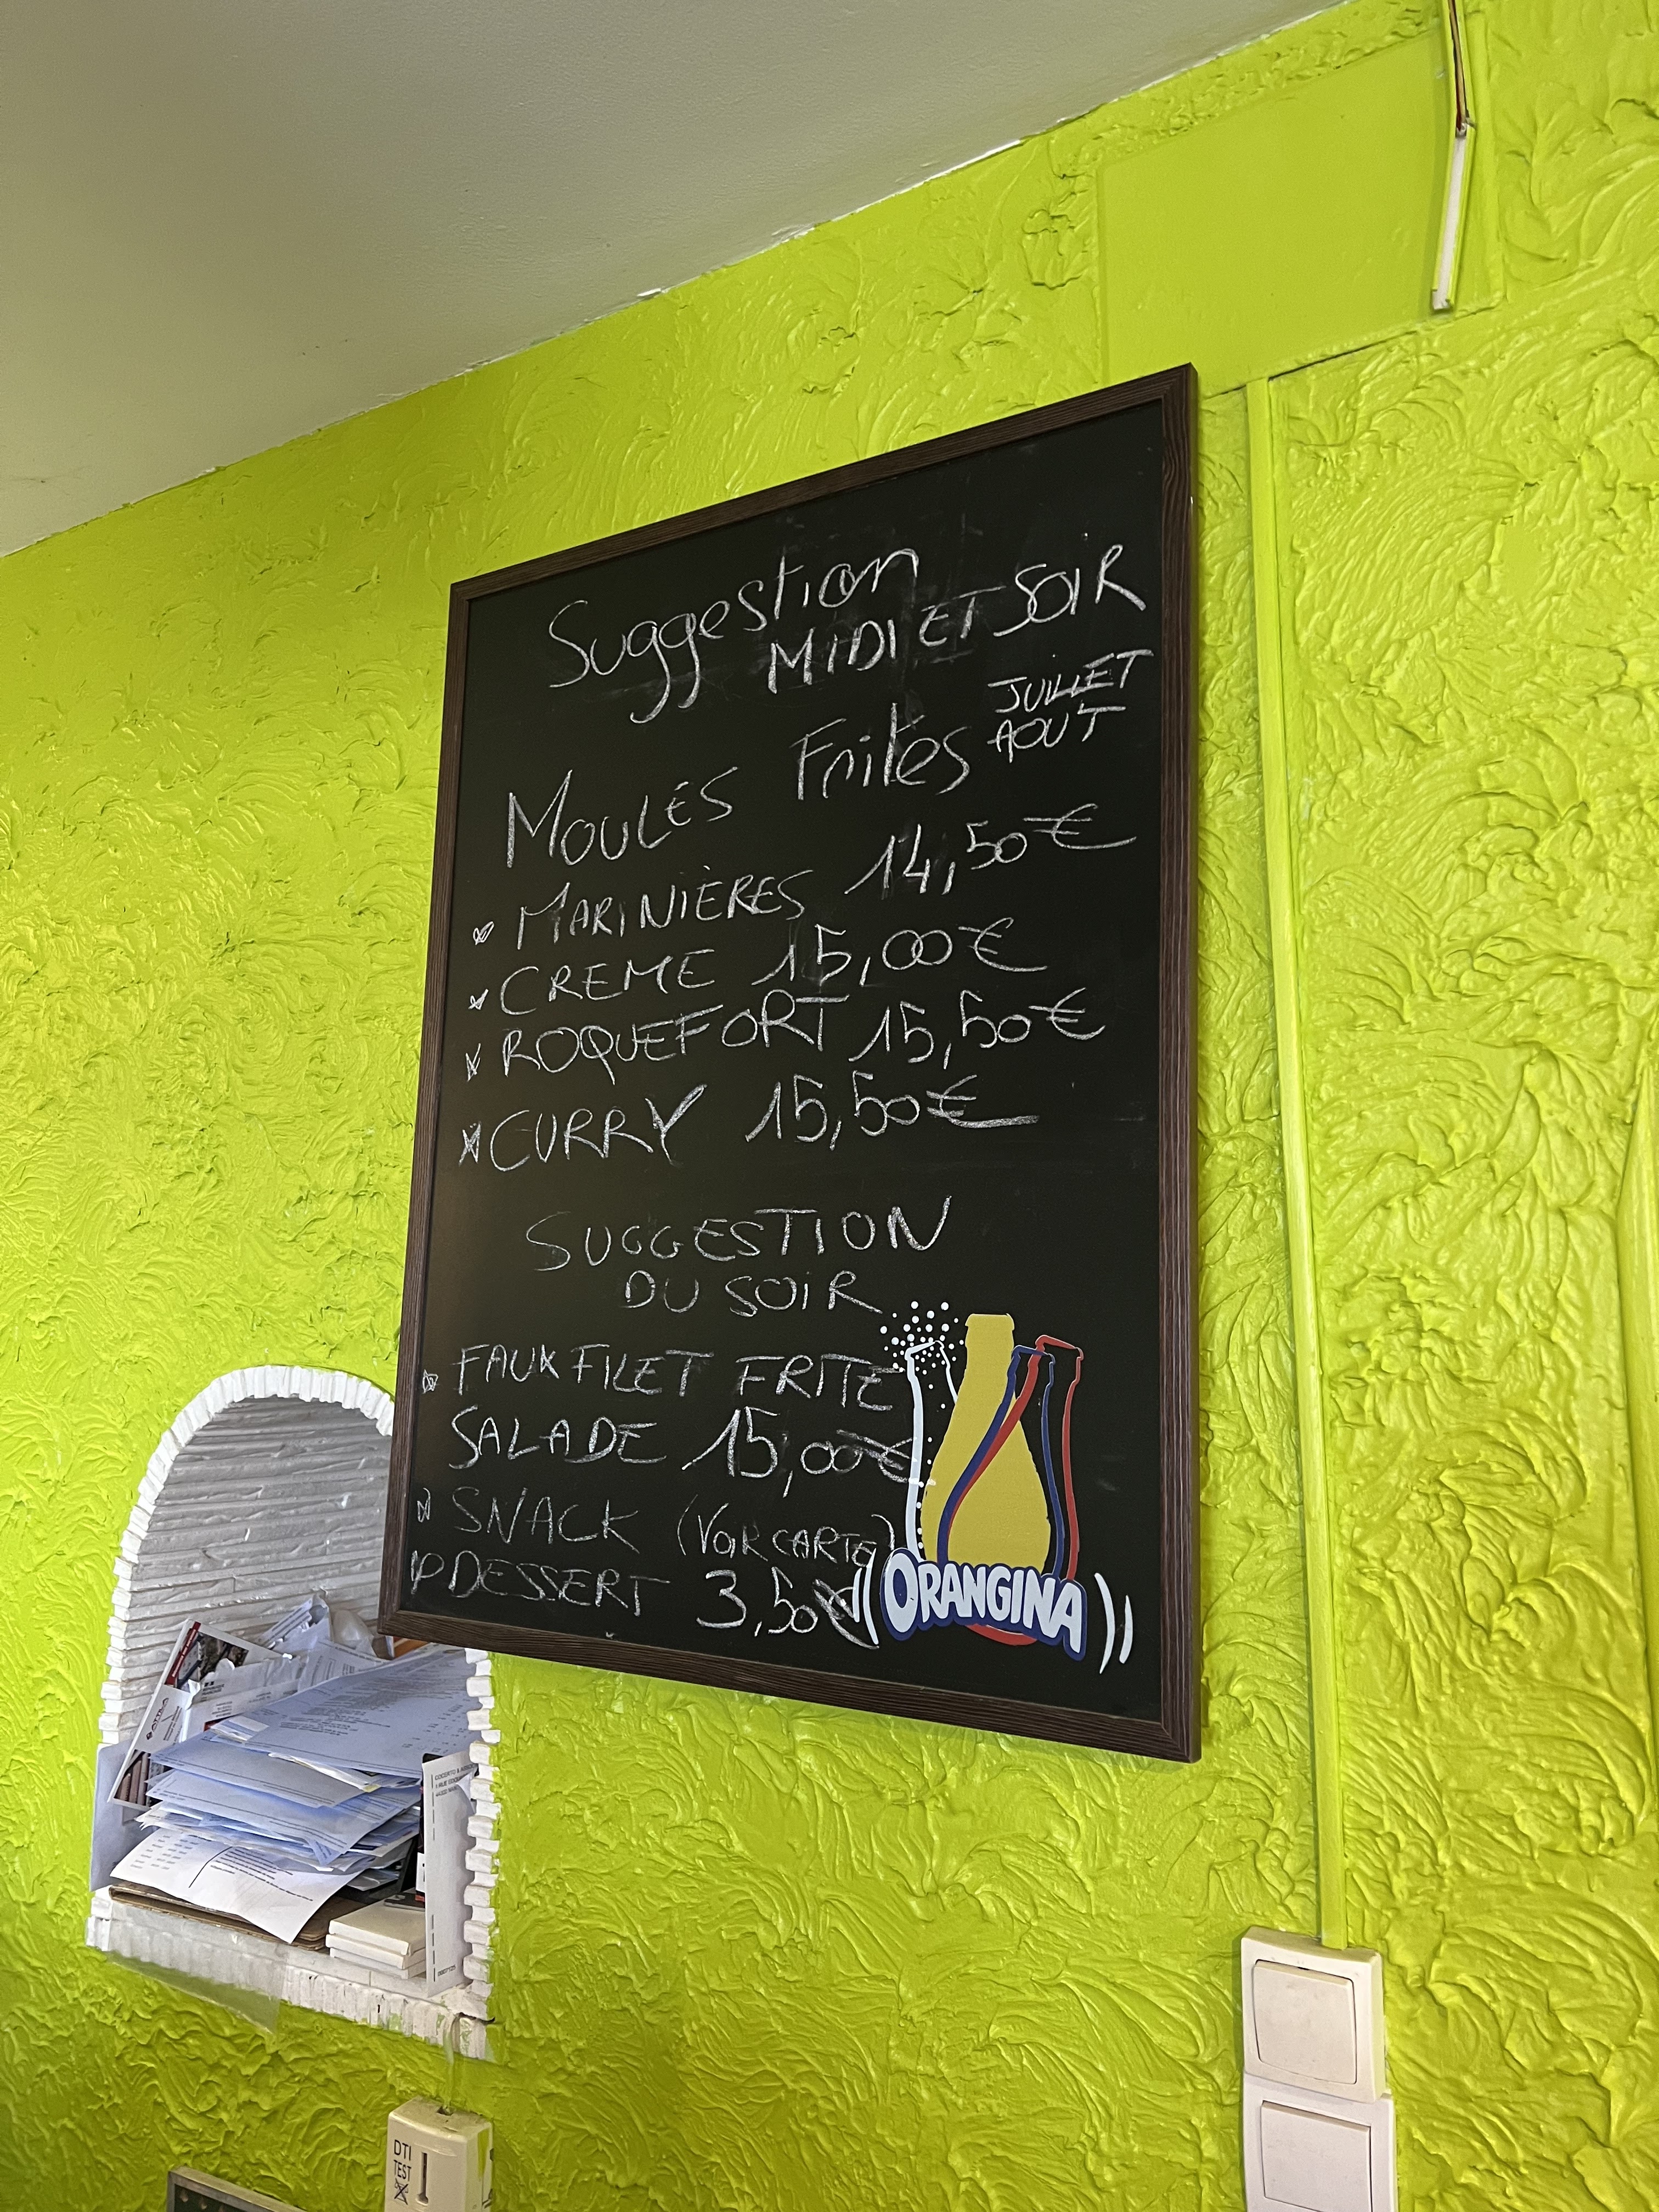 Suggestion
MIDI ET SOIR
JUILLET
AOUT
MOULES Frites
MARINIÈRES 14,50€
CREME 15,00€
ROQUEFORT 15,50€
CURRY 15,50€
SUGGESTION
DU SOIR
FAUX FILET FRITE
SALADE 15,00€
SNACK (VOIR CARTE)
DESSERT 3,50€
ORANGINA
DTI
TEST